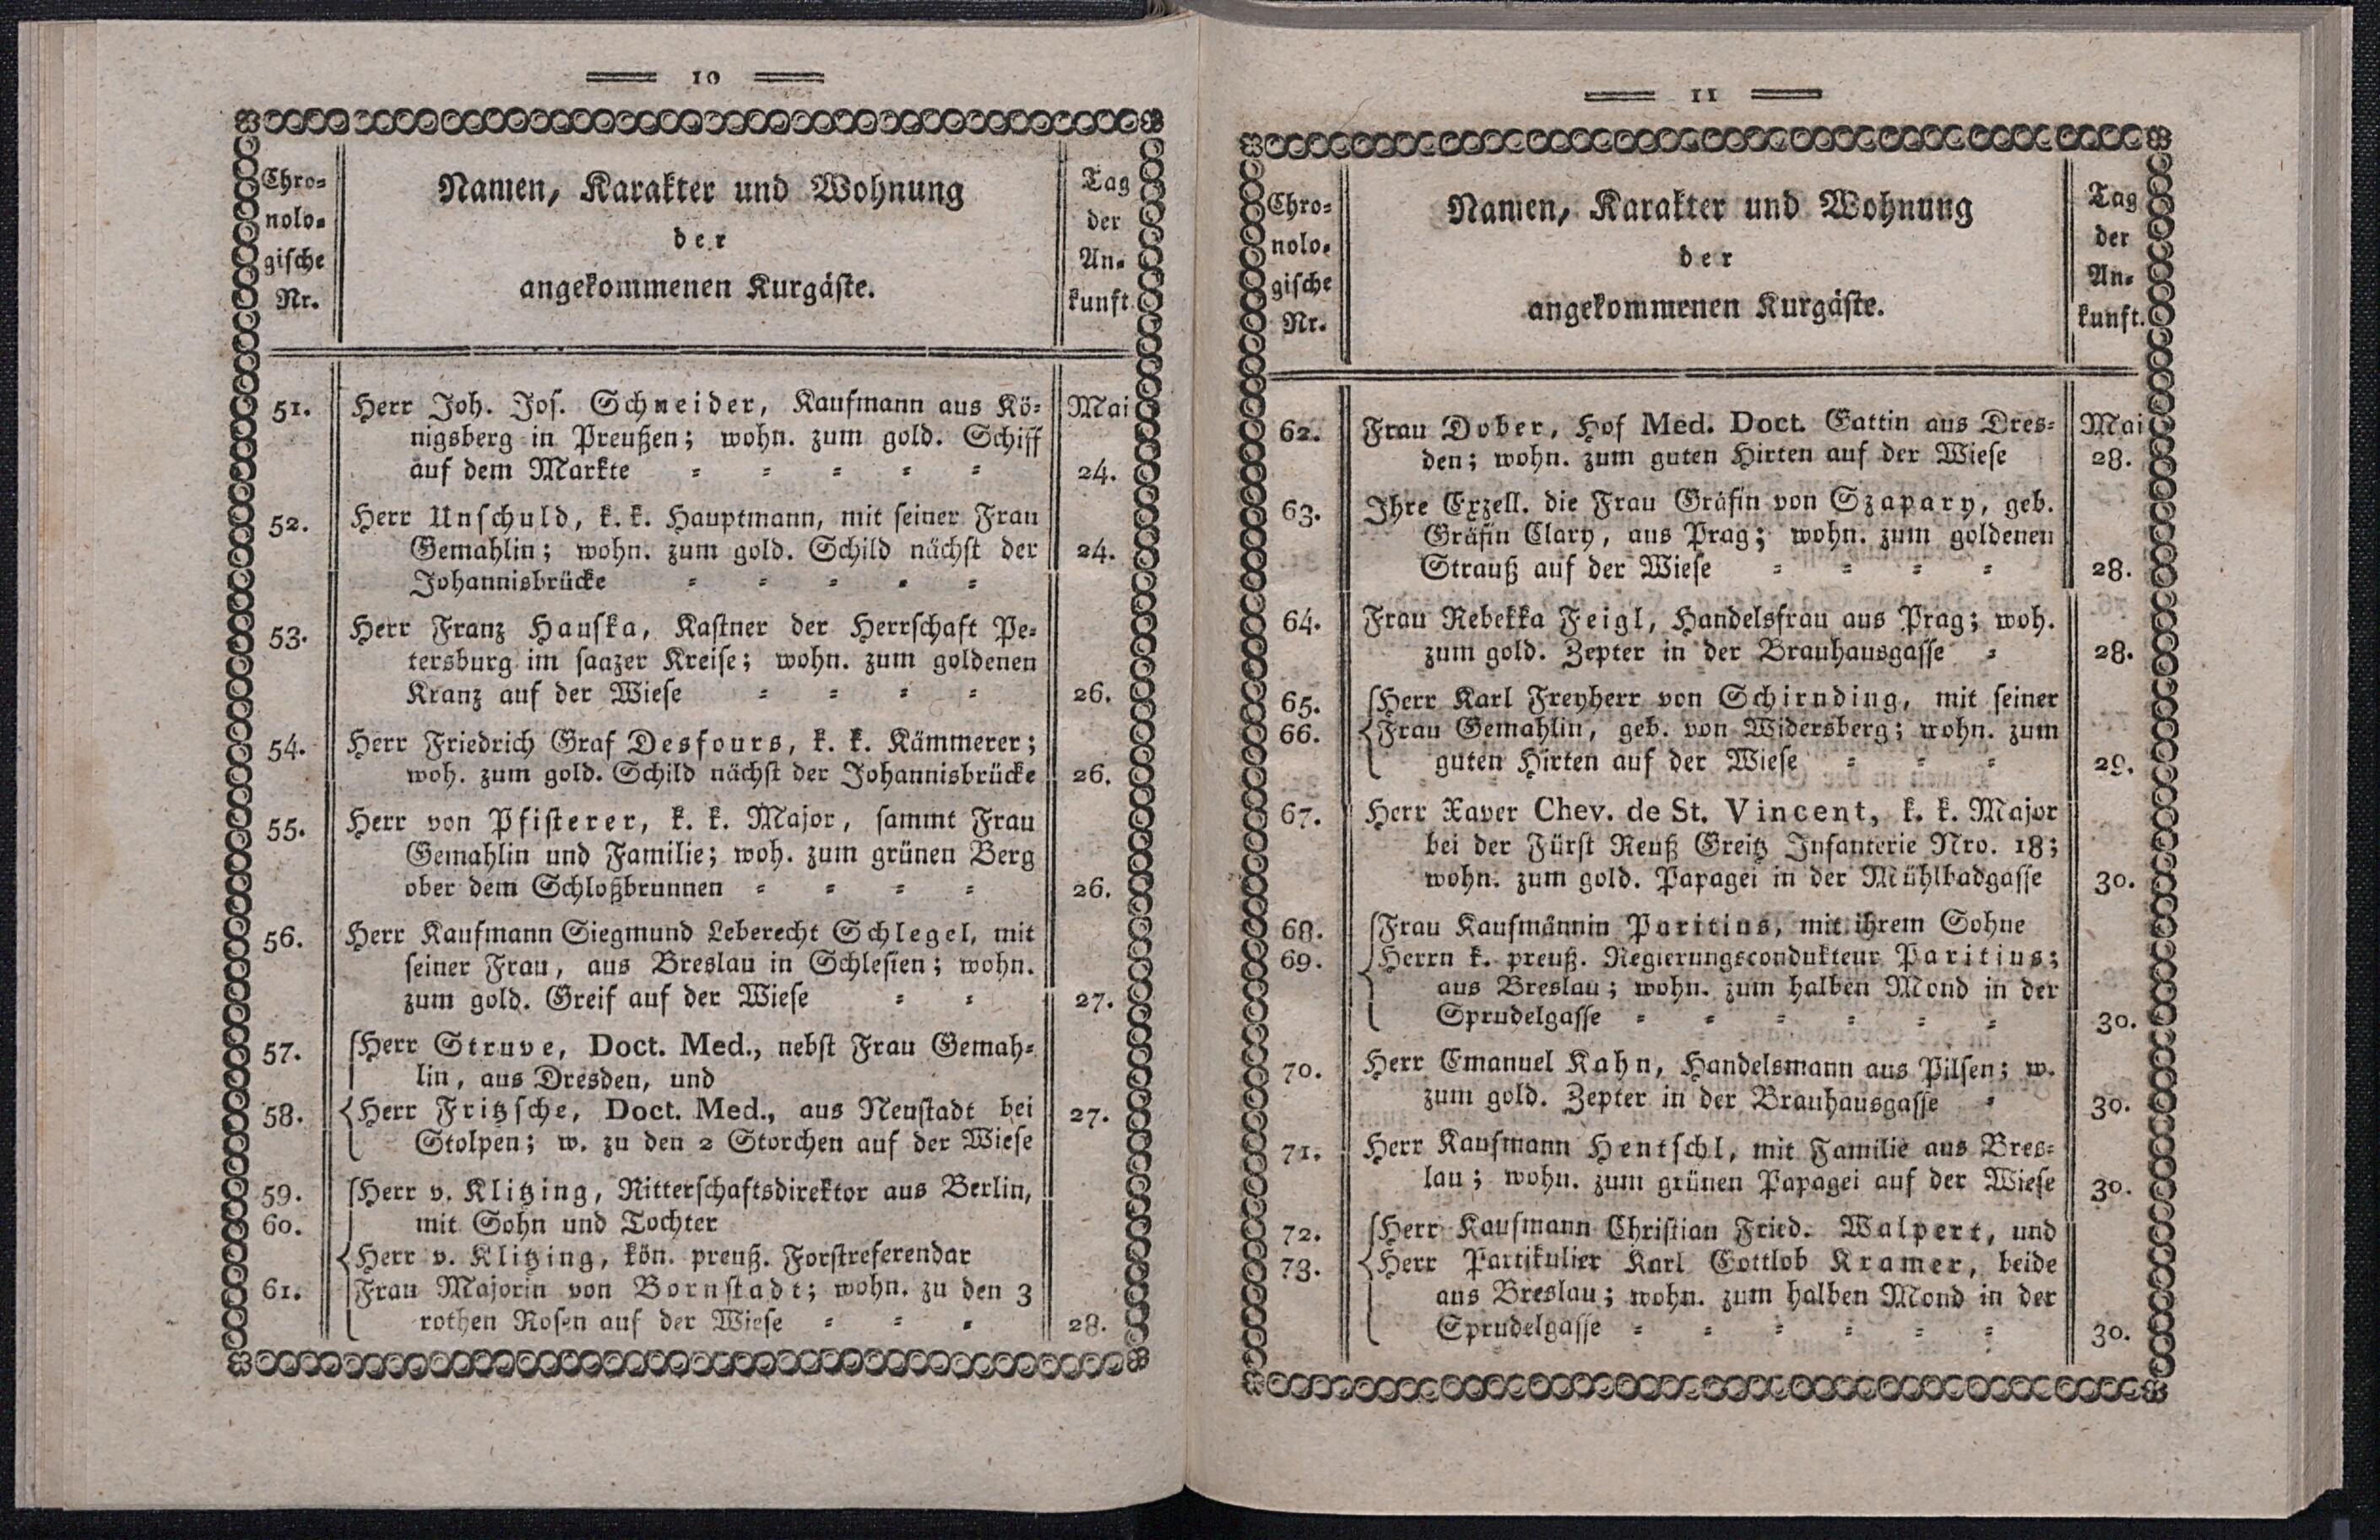 10
Chro-
nolo-
gische
Nr.
Namen, Karakter und Wohnung
der
angekommenen Kurgäste.
Tag
der
An-
kunft.
51. Herr Joh. Jos. Schneider, Kaufmann aus Kö- Mai
nigsberg in Preußen; wohn. zum gold. Schiff
auf dem Markte - - - - - 24.
52. Herr Unschuld, k. k. Hauptmann, mit seiner Frau
Gemahlin; wohn. zum gold. Schild nächst der 24.
Johannisbrücke - - - - -
53. Herr Franz Hauska, Kastner der Herrschaft Pe-
tersburg im saazer Kreise; wohn. zum goldenen
Kranz auf der Wiese - - - - 26.
54. Herr Friedrich Graf Desfours, k. k. Kämmerer;
woh. zum gold. Schild nächst der Johannisbrücke 26.
55. Herr von Pfisterer, k. k. Major, sammt Frau
Gemahlin und Familie; woh. zum grünen Berg
ober dem Schloßbrunnen - - - - 26.
56. Herr Kaufmann Siegmund Leberecht Schlegel, mit
seiner Frau, aus Breslau in Schlesien; wohn.
zum gold. Greif auf der Wiese - - 27.
57. Herr Struve, Doct. Med., nebst Frau Gemah-
lin, aus Dresden, und
58. Herr Fritzsche, Doct. Med., aus Neustadt bei 27.
Stolpen; w. zu den 2 Storchen auf der Wiese
59. Herr v. Klitzing, Ritterschaftsdirektor aus Berlin,
60. mit Sohn und Tochter
Herr v. Klitzing, kön. preuß. Forstreferendar
61. Frau Majorin von Bornstadt; wohn. zu den 3
rothen Rosen auf der Wiese - - - 28.
11
Chro-
nolo-
gische
Nr.
Namen, Karakter und Wohnung
der
angekommenen Kurgäste.
Tag
der
An-
kunft.
62. Frau Dober, Hof Med. Doct. Gattin aus Dres- Mai
den; wohn. zum guten Hirten auf der Wiese 28.
63. Ihre Exzell. die Frau Gräfin von Szapary, geb.
Gräfin Clary, aus Prag; wohn. zum goldenen
Strauß auf der Wiese - - - - 28.
64. Frau Rebekka Feigl, Handelsfrau aus Prag; woh.
zum gold. Zepter in der Brauhausgasse - 28.
65. Herr Karl Freyherr von Schirnding, mit seiner
66. Frau Gemahlin, geb. von Widersberg; wohn. zum
guten Hirten auf der Wiese - - - 29.
67. Herr Xaver Chev. de St. Vincent, k. k. Major
bei der Fürst Reuß Greitz Infanterie Nro. 18;
wohn. zum gold. Papagei in der Mühlbadgasse 30.
68. Frau Kaufmännin Paritius, mit ihrem Sohne
69. Herrn k. preuß. Regierungscondukteur Paritius;
aus Breslau; wohn. zum halben Mond in der
Sprudelgasse - - - - - - 30.
70. Herr Emanuel Kahn, Handelsmann aus Pilsen; w.
zum gold. Zepter in der Brauhausgasse - 30.
71. Herr Kaufmann Hentschl, mit Familie aus Bres-
lau; wohn. zum grünen Papagei auf der Wiese 30.
72. Herr Kaufmann Christian Fried. Walpert, und
73. Herr Partikulier Karl Gottlob Kramer, beide
aus Breslau; wohn. zum halben Mond in der
Sprudelgasse - - - - - - 30.